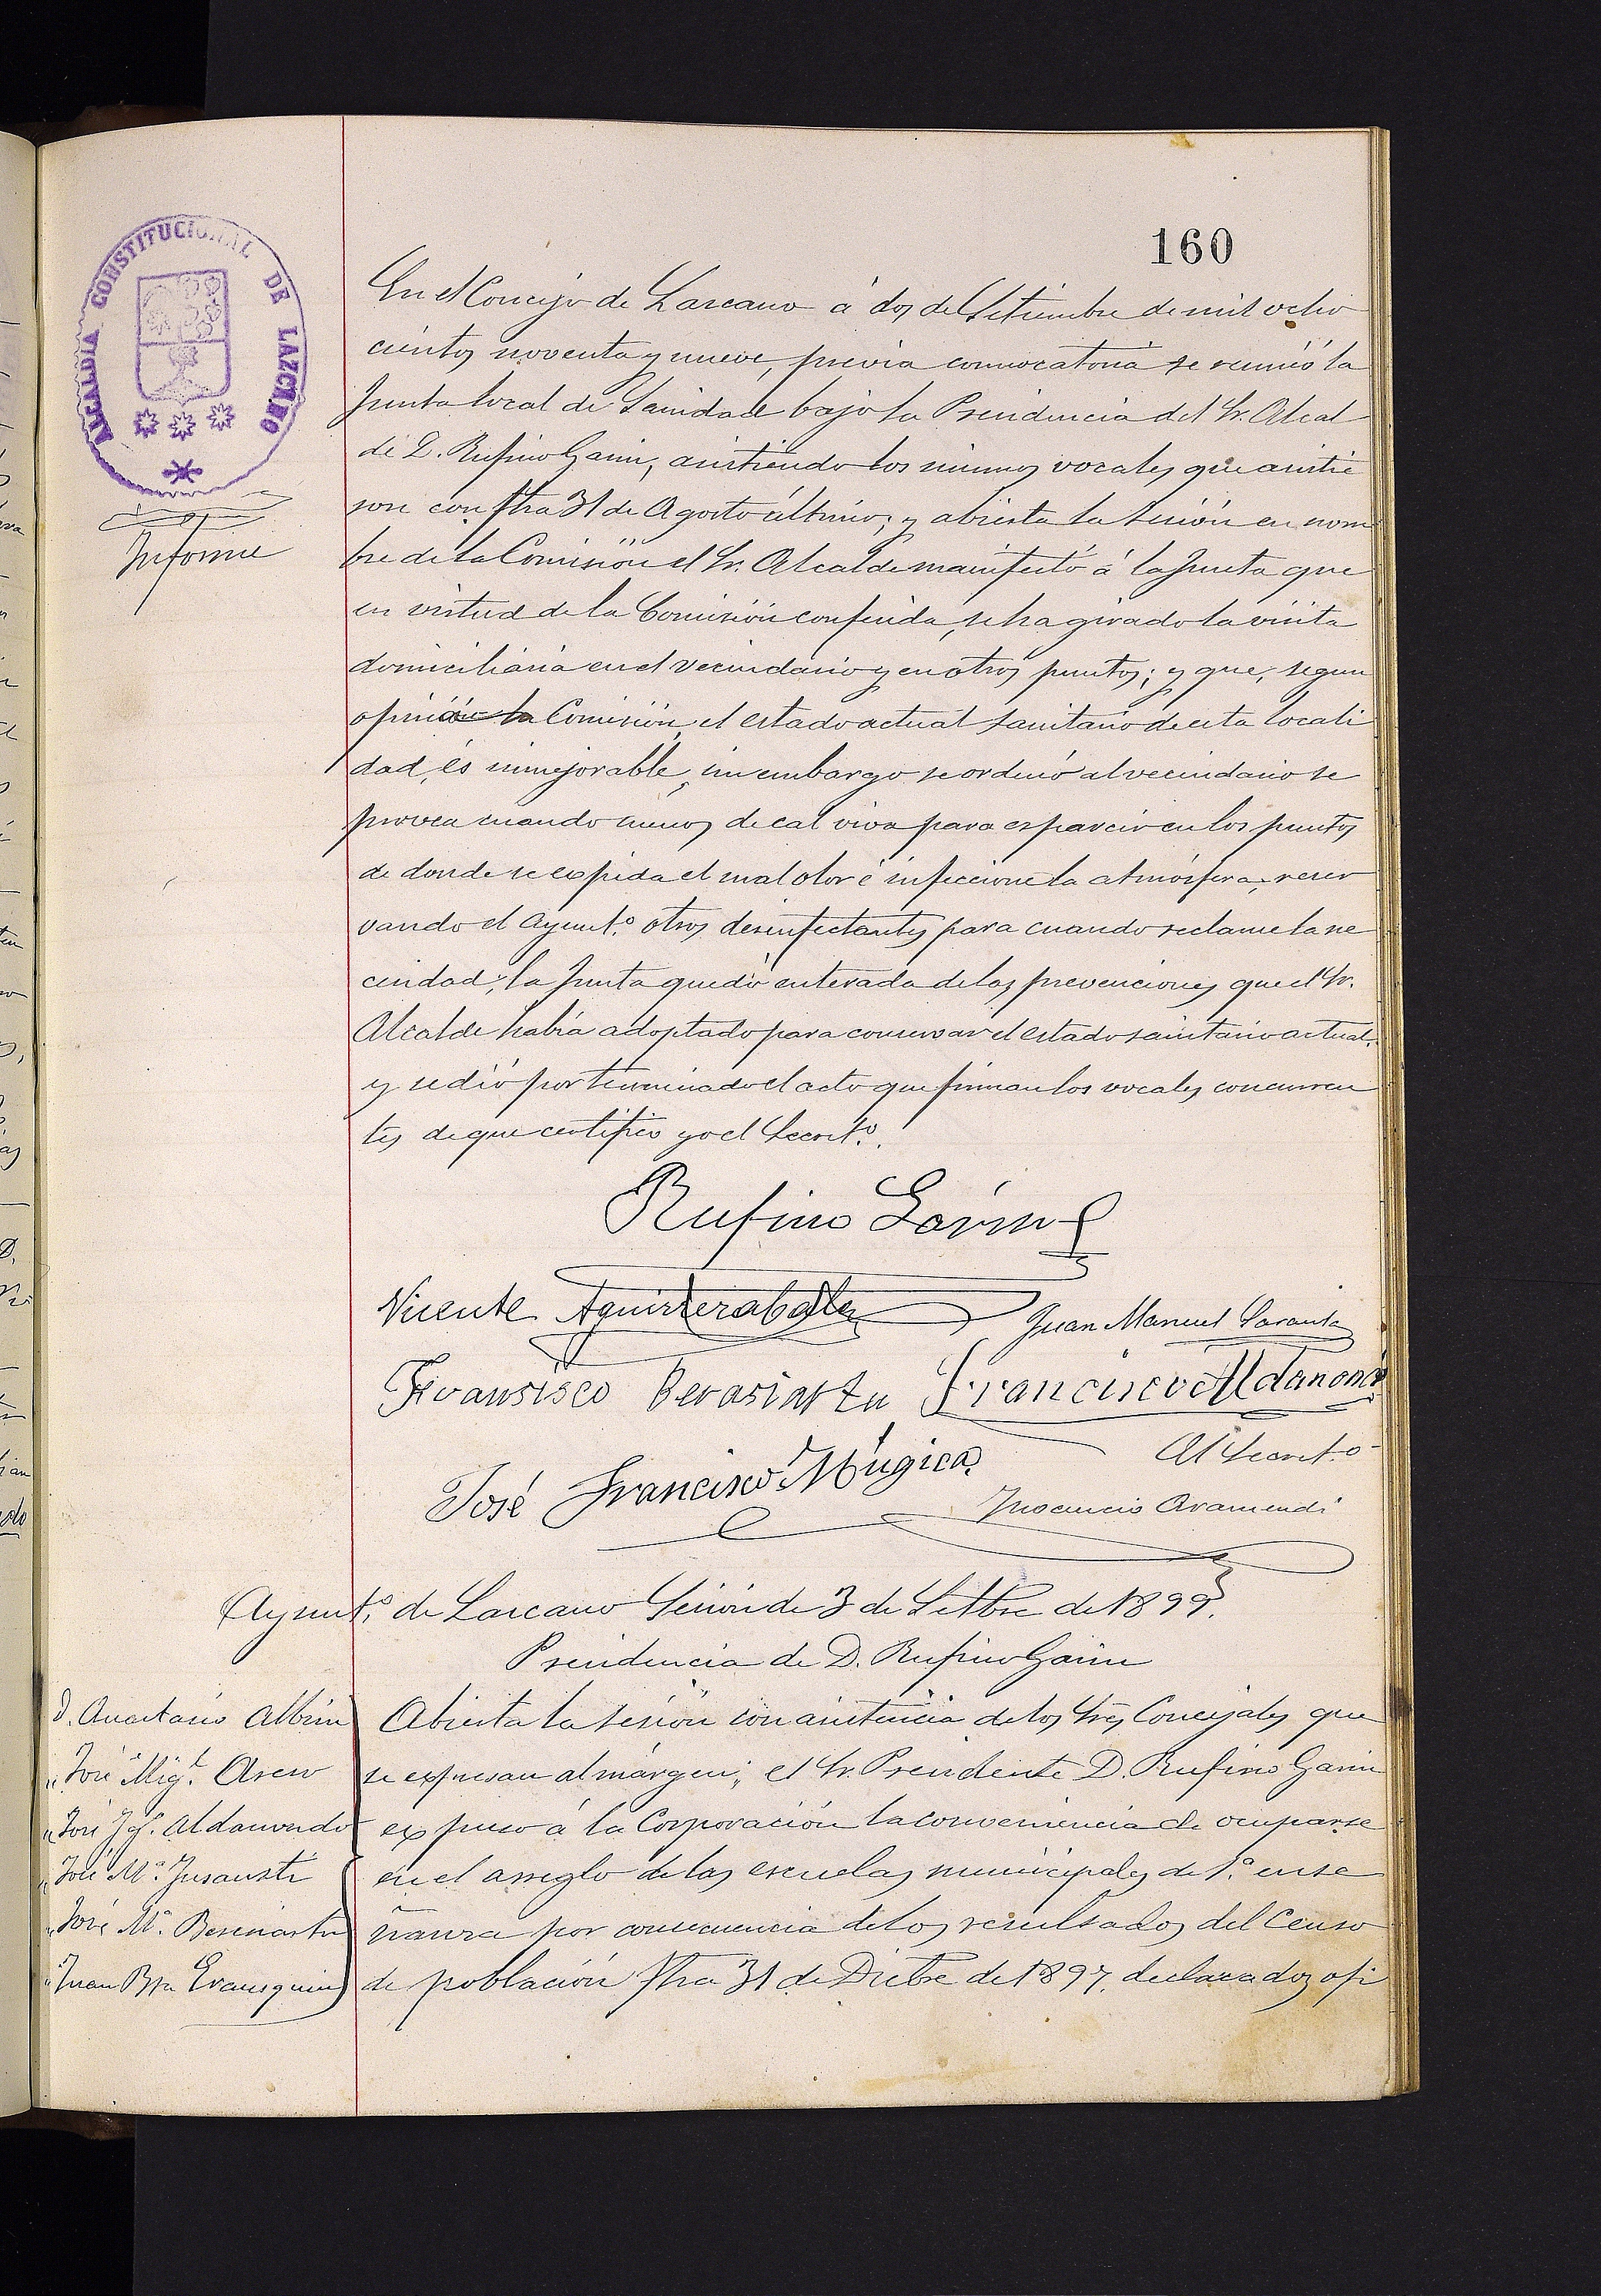 160
ALCALDIA CONSTITUCIONAL DE LAZCANO
Informe
En el Concejo de Lazcano á dos de Setiembre de mil ocho
cientos noventa y nueve, previa convocatoria se reunió la
Junta local de Sanidad bajo la Presidencia del Sr. Alcal
de D. Rufino Garin, asistiendo los mismos vocales que asistie
ron con fha 31 de Agosto último; y abierta la sesión en nom
bre de la Comisión el Sr. Alcalde manifestó á la Junta que
en virtud de la Comisión conferida, se ha girado la visita
domiciliaria en el vecindario y en otros puntos; y que, segun
opinión la Comisión, el estado actual sanitario de esta locali
dad, és inmejorable, sin embargo se ordenó al vecindario se
provea cuando menos de cal viva para esparcir en los puntos
de donde se expida el mal olor é infeccione la atmósfera, reser
vando el Ayunt.º otros desinfectantes para cuando reclame la ne
cesidad; la Junta quedó enterada de las prevenciones que el Sr.
Alcalde había adoptado para conservar el estado sanitario actual,
y se dió por terminado el acto que firman los vocales concurren
tes de que certifico yo el Secret.º
Rufino Garin
Vicente Aguirrezabala
Juan Manuel
Fransisco Berasiartu Francisco Aldanondo
José Francisco Múgica
El Secret.º
Inocencio Aramendi
Ayunt.º de Lazcano Sesión de 3 de Setbre de 1899.
Presidencia de D. Rufino Garin
D. Anastasio Albisu
" José Mig.l Asero
" José Ig.º Aldanondo
" José M.ª Insausti
" José M.ª Beresiartu
" Juan Bta Erausquin
Abierta la sesión con asistencia de los Sres Concejales que
se expresan al márgen; el Sr. Presidente D. Rufino Garin
expuso á la Corporación la conveniencia de ocuparse
en el arreglo de las escuelas municipales de 1.ª ense
ñanza por consecuencia de los resultados del Censo
de población fha 31 de Dicbre de 1897, declarados ofi